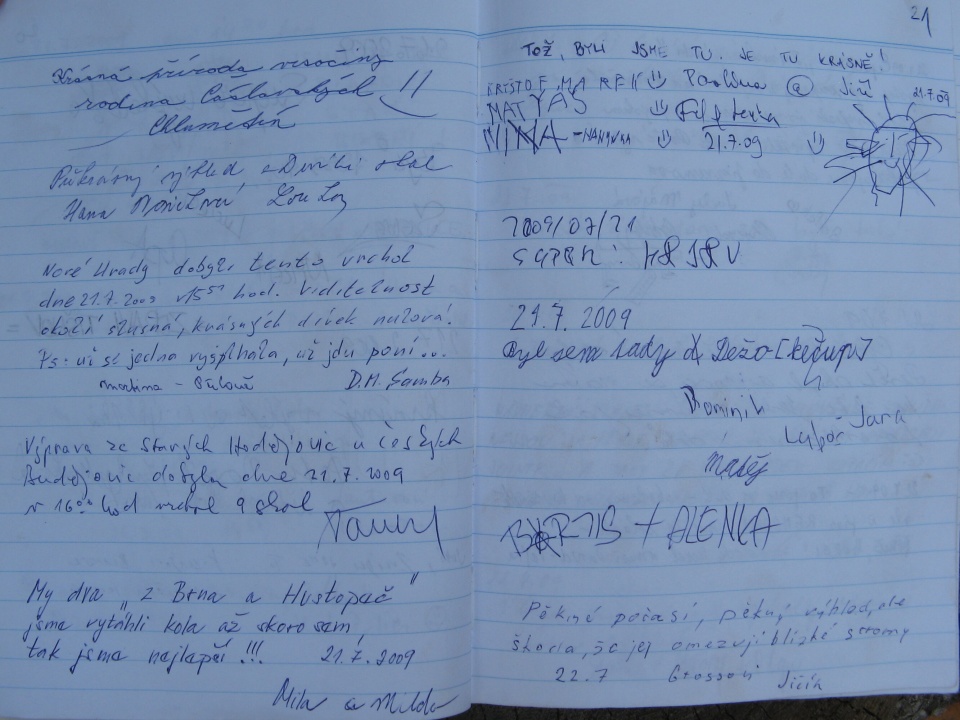 Krásná příroda vysočiny
rodina Čáslavských !!
Chlumětín
Překrásný výhled z Devíti skal
Hana
Nové Hrady dobyly tento vrchol
dne 21.7.2009 v 15 51 hod. Viditelnost
okolí slušná, krásných dívek nulová!
Ps: už se jedna vyšplhala, už jdu po ní...
Martina - D.M. Samba
Výprava ze Starých Hodějovic u Českých
Budějovic dobyla dne 21.7.2009
v 16 00 hod vrchol 9 skal
My dva „z Brna a Hustopeč"
jsme vytáhli kola až skoro sem,
tak jsme nejlepší !!! 21.7.2009
Míla a Milda
21
TOŽ, BYLI JSME TU. JE TU KRÁSNĚ!
KRIŠTOF, MAREK Pavlína @ Jiří 21.7.09
MATYÁŠ Filip Lenka
NINA - 21.7.09
2009/07/21
21.7.2009
Byl sem tady & Dežo [kečup]
Dominik
Luboš Jara
Matěj
+ ALENKA
Pěkné počasí, pěkný výhled, ale
škoda, že jej omezují blízké stromy
22.7 Grossovi Jičín